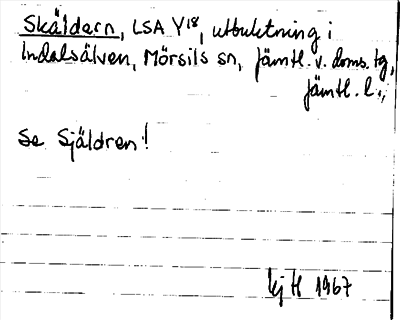 Skäldern, LSA Y18, utbuktning i
Indalsälven, Mörsils sn, Jämtl. v. doms. tg,
Jämtl. l.,
Se Själdren!
1967